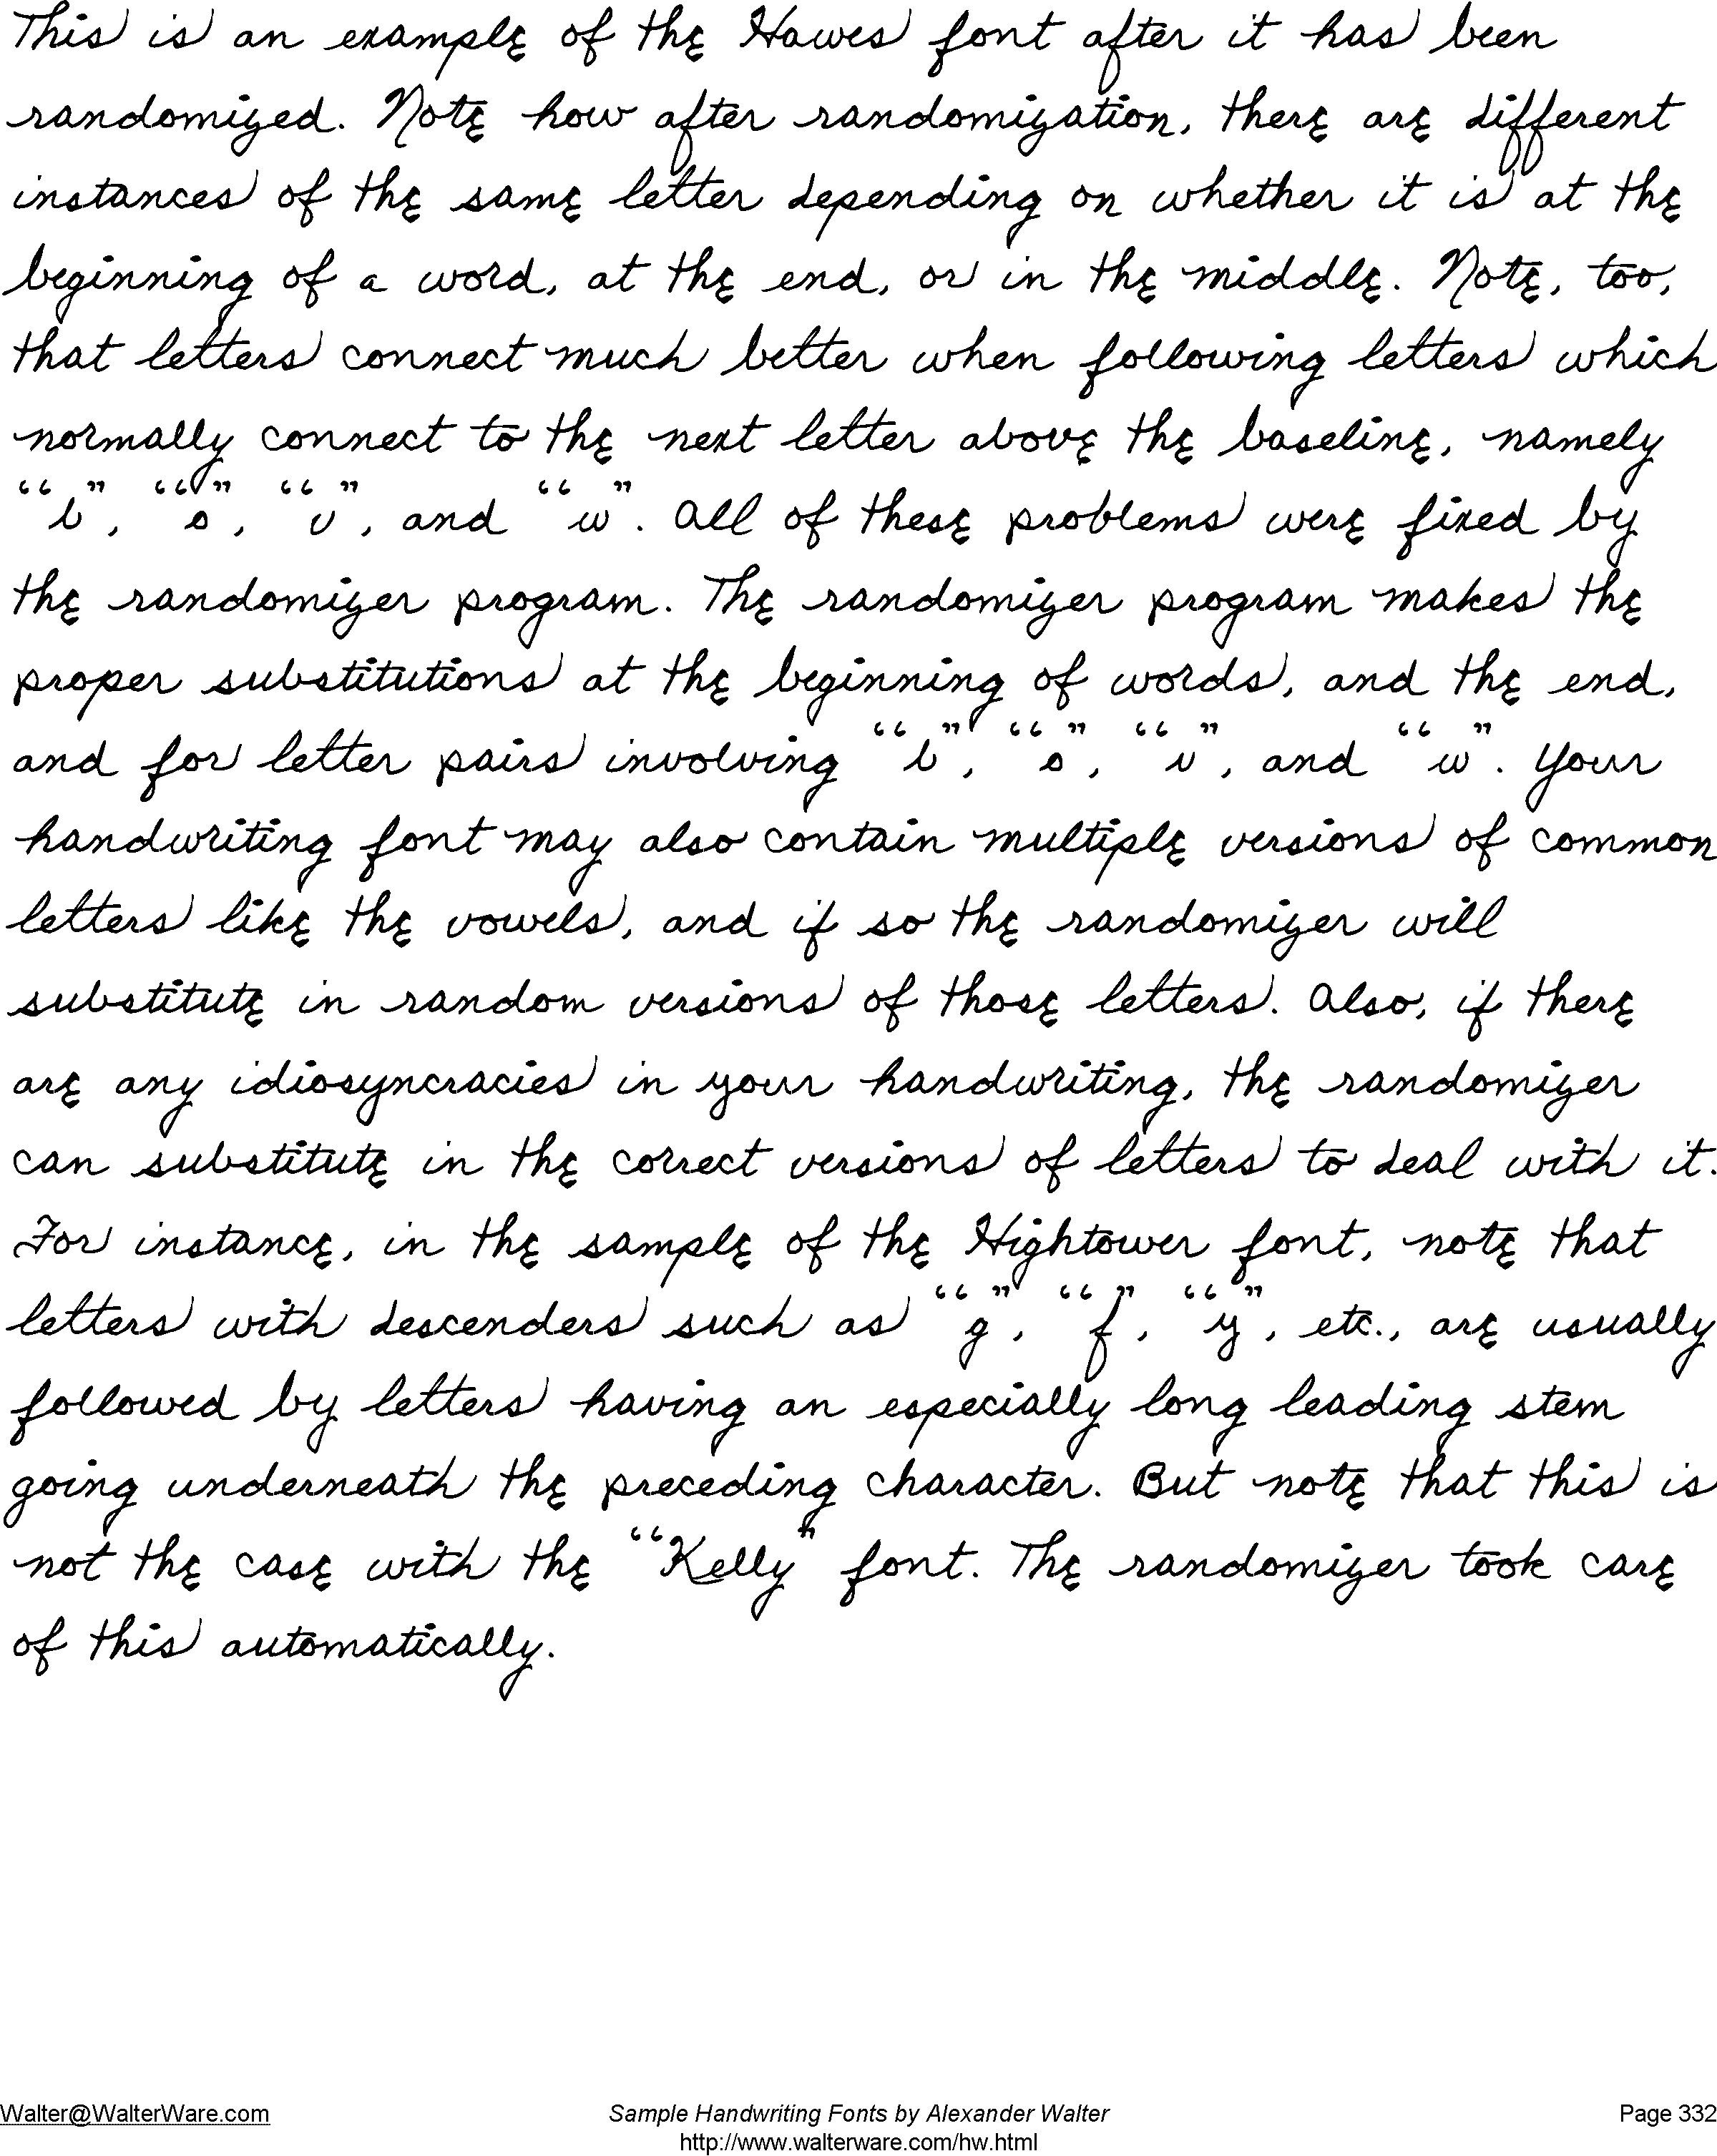 This is an example of the Hawes font after it has been
randomized. Note how after randomization, there are different
instances of the same letter depending on whether it is at the
beginning of a word, at the end, or in the middle. Note, too,
that letters connect much better when following letters which
normally connect to the next letter above the baseline, namely
“b”, “o”, “v”, and “w”. All of these problems were fixed by
the randomizer program. The randomizer program makes the
proper substitutions at the beginning of words, and the end,
and for letter pairs involving “b”, “o”, “v”, and “w”. Your
handwriting font may also contain multiple versions of common
letters like the vowels, and if so the randomizer will
substitute in random versions of those letters. Also, if there
are any idiosyncracies in your handwriting, the randomizer
can substitute in the correct versions of letters to deal with it.
For instance, in the sample of the Hightower font, note that
letters with descenders such as “g”, “f”, “y”, etc., are usually
followed by letters having an especially long leading stem
going underneath the preceding character. But note that this is
not the case with the “Kelly” font. The randomizer took care
of this automatically.
Walter@WalterWare.com Sample Handwriting Fonts by Alexander Walter Page 332
http://www.walterware.com/hw.html